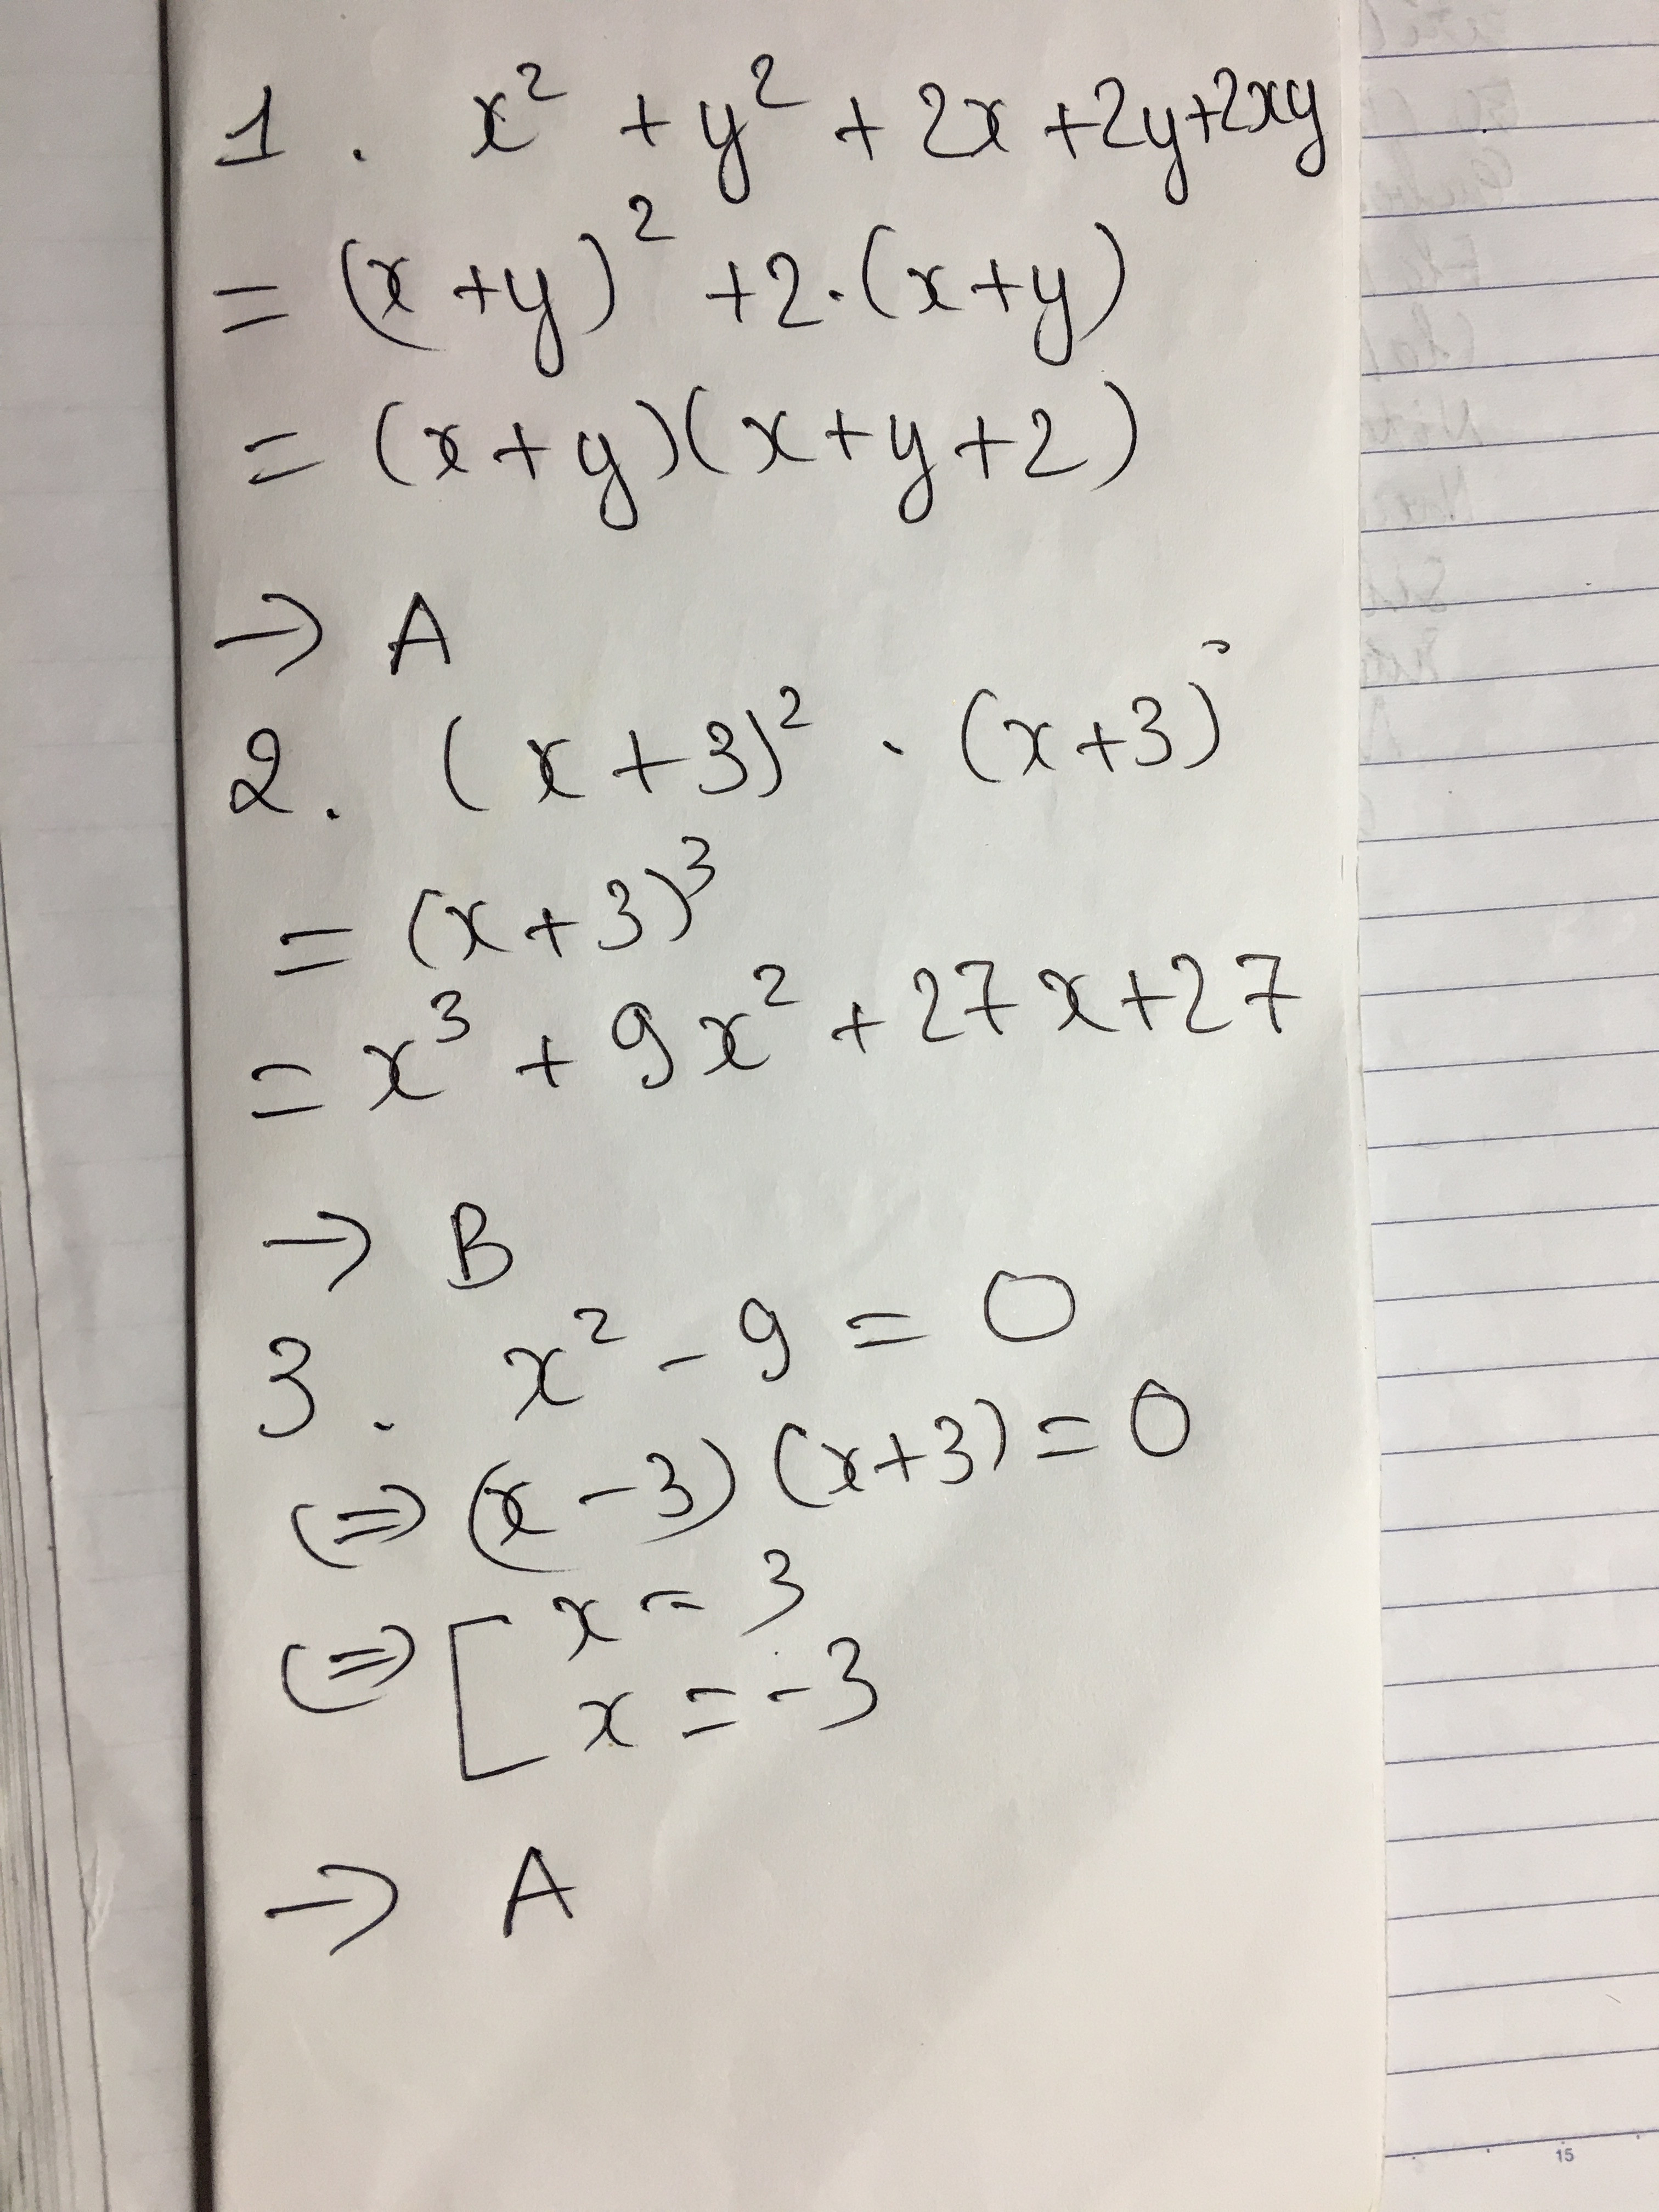 1. x² + y² + 2x + 2y + 2xy
= (x + y)² + 2.(x + y)
= (x + y)(x + y + 2)
→ A
2. (x + 3)² . (x + 3)
= (x + 3)³
= x³ + 9x² + 27x + 27
→ B
3. x² - 9 = 0
⇔ (x - 3)(x + 3) = 0
⇔ [ x = 3
x = -3
→ A
15